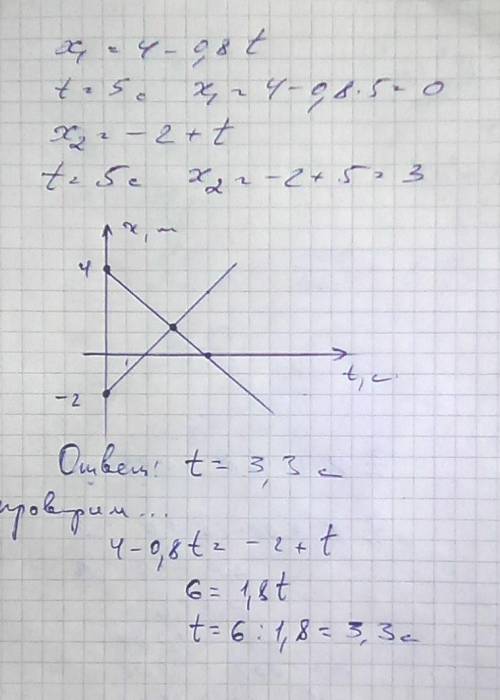 x₁ = 4 - 0,8 t
t = 5 с x₁ = 4 - 0,8 · 5 = 0
x₂ = - 2 + t
t = 5 с x₂ = - 2 + 5 = 3
x, м
4
t, с
-2
Ответ: t = 3,3 с
проверим...
4 - 0,8 t = - 2 + t
6 = 1,8 t
t = 6 : 1,8 = 3,3 с